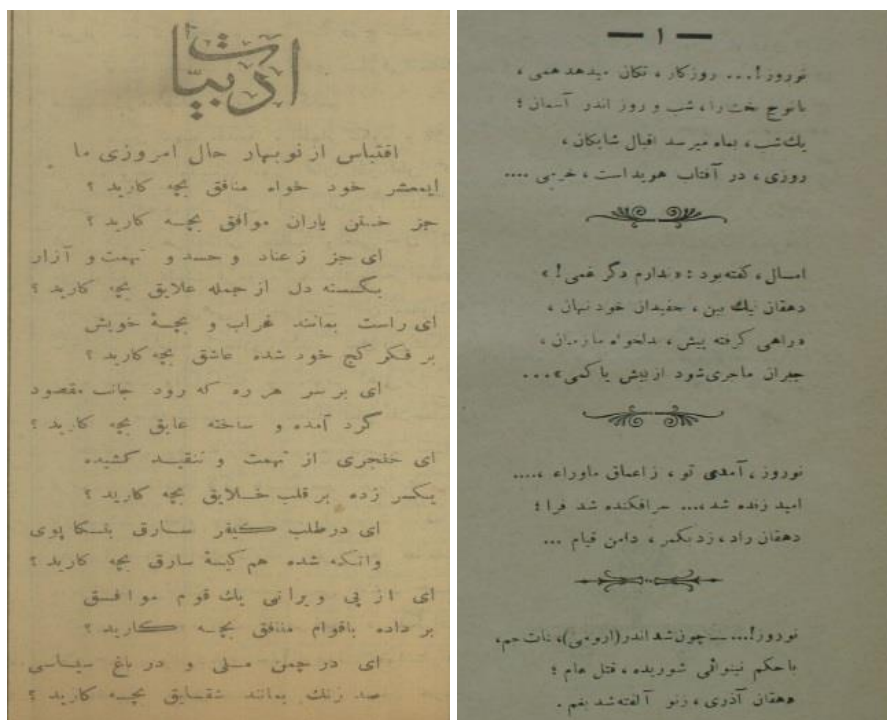 ادبیات
اقتباس از نوبهار حال امروزی ما
ایمعشر خود خواه منافق بچه کارید ؟
جز خستن یاران موافق بچه کارید ؟
ای جز ز عناد و حسد و تهمت و آزار
بگسسته دل از جمله علایق بچه کارید ؟
ای راست بمانند غراب و بچهٔ خویش
بر فکر کج خود شده عاشق بچه کارید ؟
ای بر سر هر ره که رود جانب مقصود
گرد آمده و ساخته عایق بچه کارید ؟
ای خنجری از تهمت و تنقید کشیده
یکسر زده بر قلب خلایق بچه کارید ؟
ای در طلب کیفر سارق بتکاپوی
وانگه شده هم کیسهٔ سارق بچه کارید ؟
ای از پی ویرانی یک قوم موافق
بر داده باقوام منافق بچه کارید ؟
ای در چمن ملی و در باغ سیاسی
صد رنگ بمانند شقایق بچه کارید ؟
— ۱ —
نوروز !... روزگار ، تکان میدهد همی ،
شب و روز اندر آسمان ؛
یك شب ، بماه میرسد اقبال شایگان ،
روزی ، در آفتاب هویداست ، خرمی ....
امسال ، گفته بود : « ندارم دگر غمی ! »
دهقان نیك بین ، خفیدان خود نهان ،
« راهی گرفته پیش ، بدلخواه
جبران ماجری شود از بیش یا کمی » ...
نوروز ، آمدی تو ، ز اعماق ماوراء ،....
امید زنده شد ،... سرافکنده شد فرا ؛
دهقان راد ، زد بکمر ، دامن قیام ...
نوروز !... — چون شد اندر (ارومی) ،
با حکم نینوائی شوریده ، قتل عام ؛
دهقان آذری ، ز نو آلفته شد بغم .